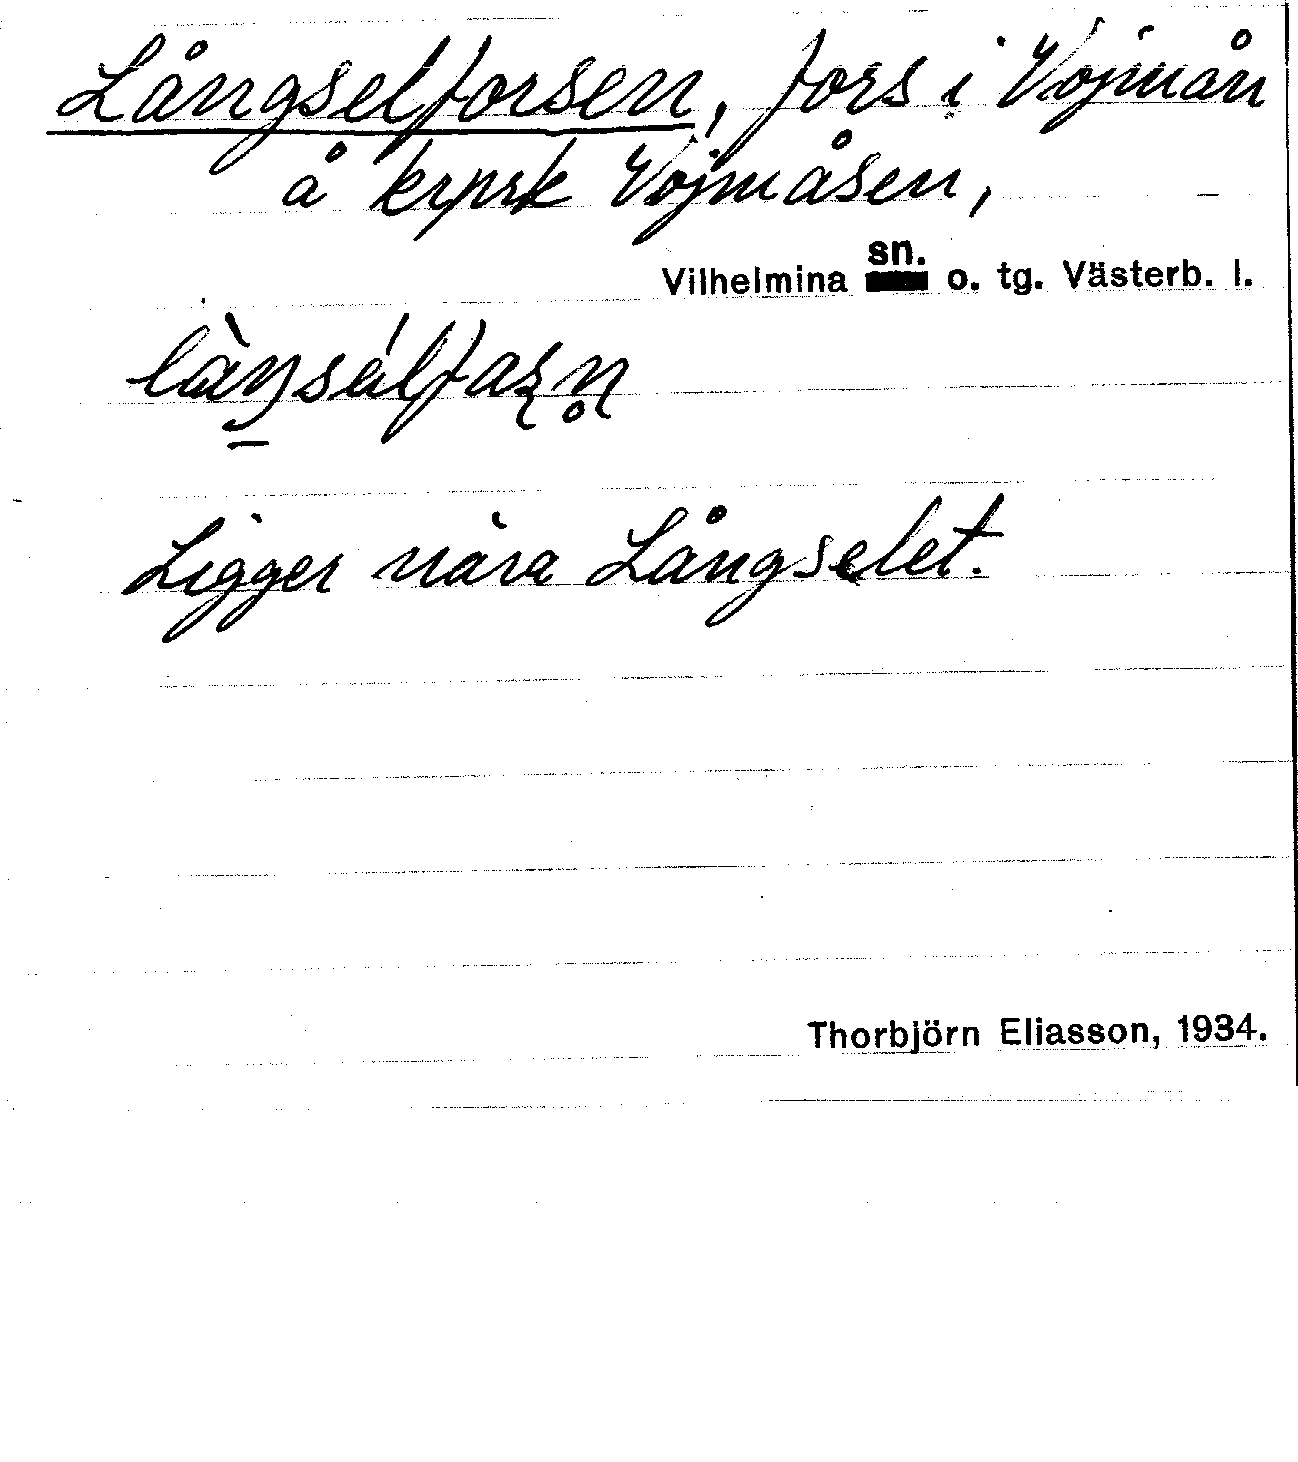 Långselforsen, fors i Vojmån
å krpsk Vojmåsen,
sn.
Vilhelmina o. tg. Västerb. l.
Ligger nära Långselet.
Thorbjörn Eliasson, 1934.